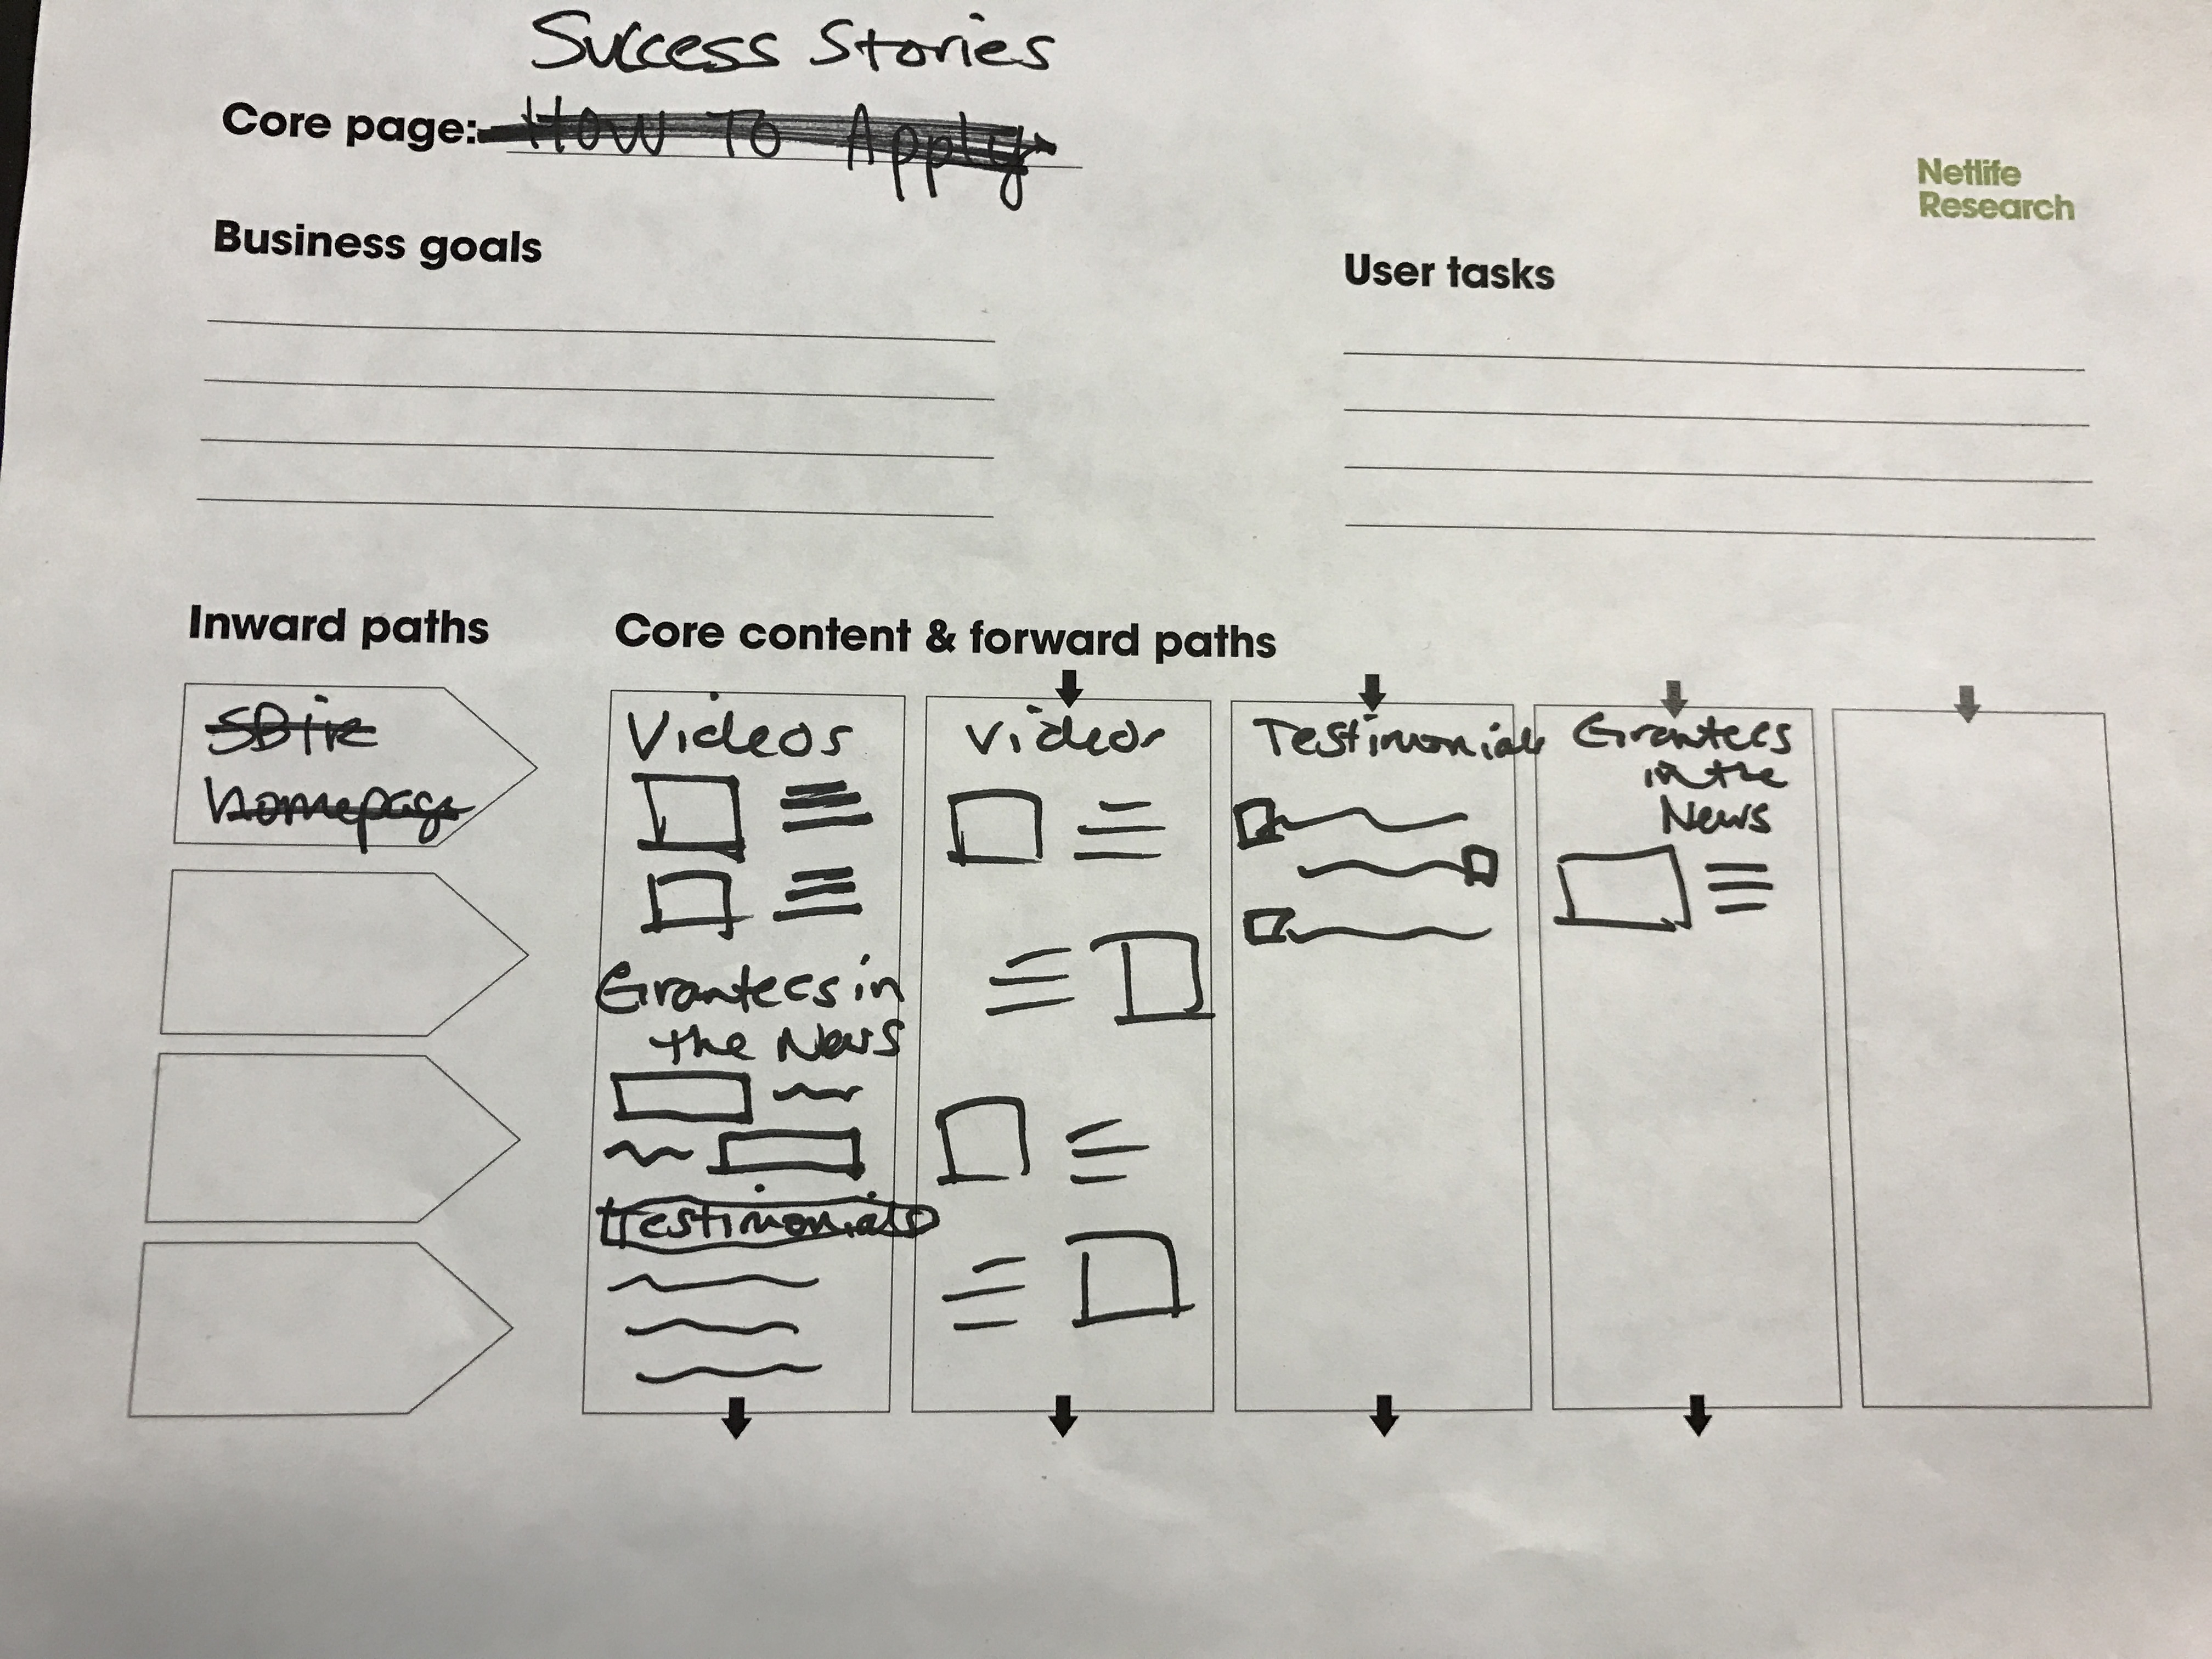 Success Stories
Core page: How To Apply
Netlife
Research
Business goals
User tasks
Inward paths
Core content & forward paths
homepage
Videos
Grantees in
the News
Testimonials
Videos
Testimonials
Grantees
in the
News